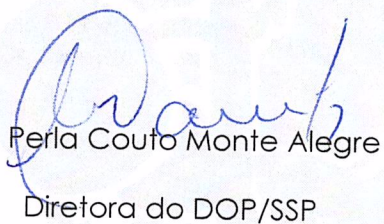 Perla Couto Monte Alegre
Diretora do DOP/SSP